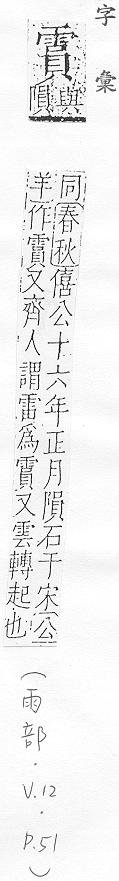 字彙
霣
與隕
同春秋僖公十六年正月隕石于宋公
羊作霣又齊人謂雷爲霣又雲轉起也
(雨部.V.12.P.51)